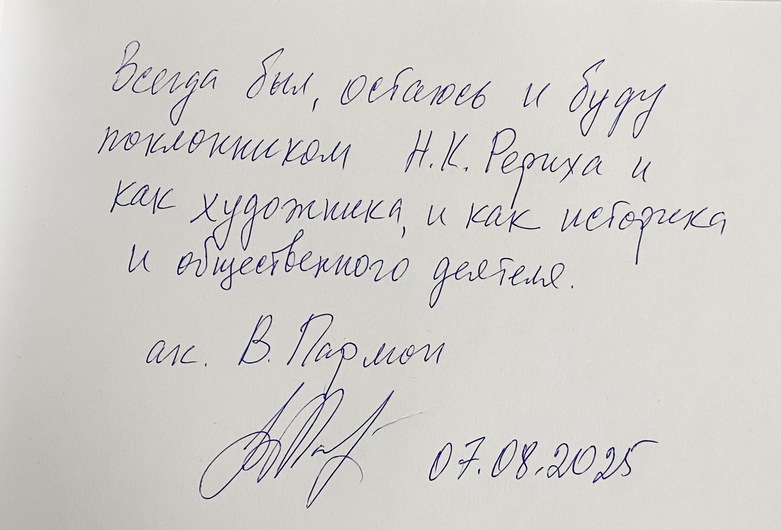 Всегда был, остаюсь и буду
поклонником Н.К. Рериха и
как художника, и как историка
и общественного деятеля.
ак. В. Пармон
07.08.2025